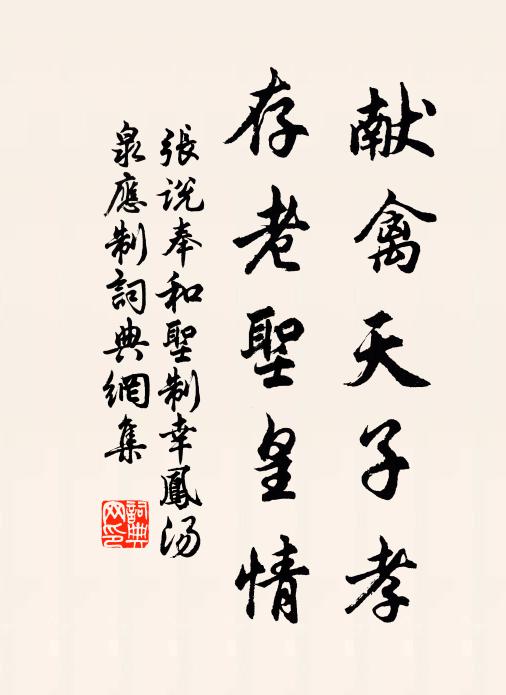 献禽天子孝
存老聖皇情
張说奉和聖制幸鳳汤
泉應制詞典網集
詞典网印